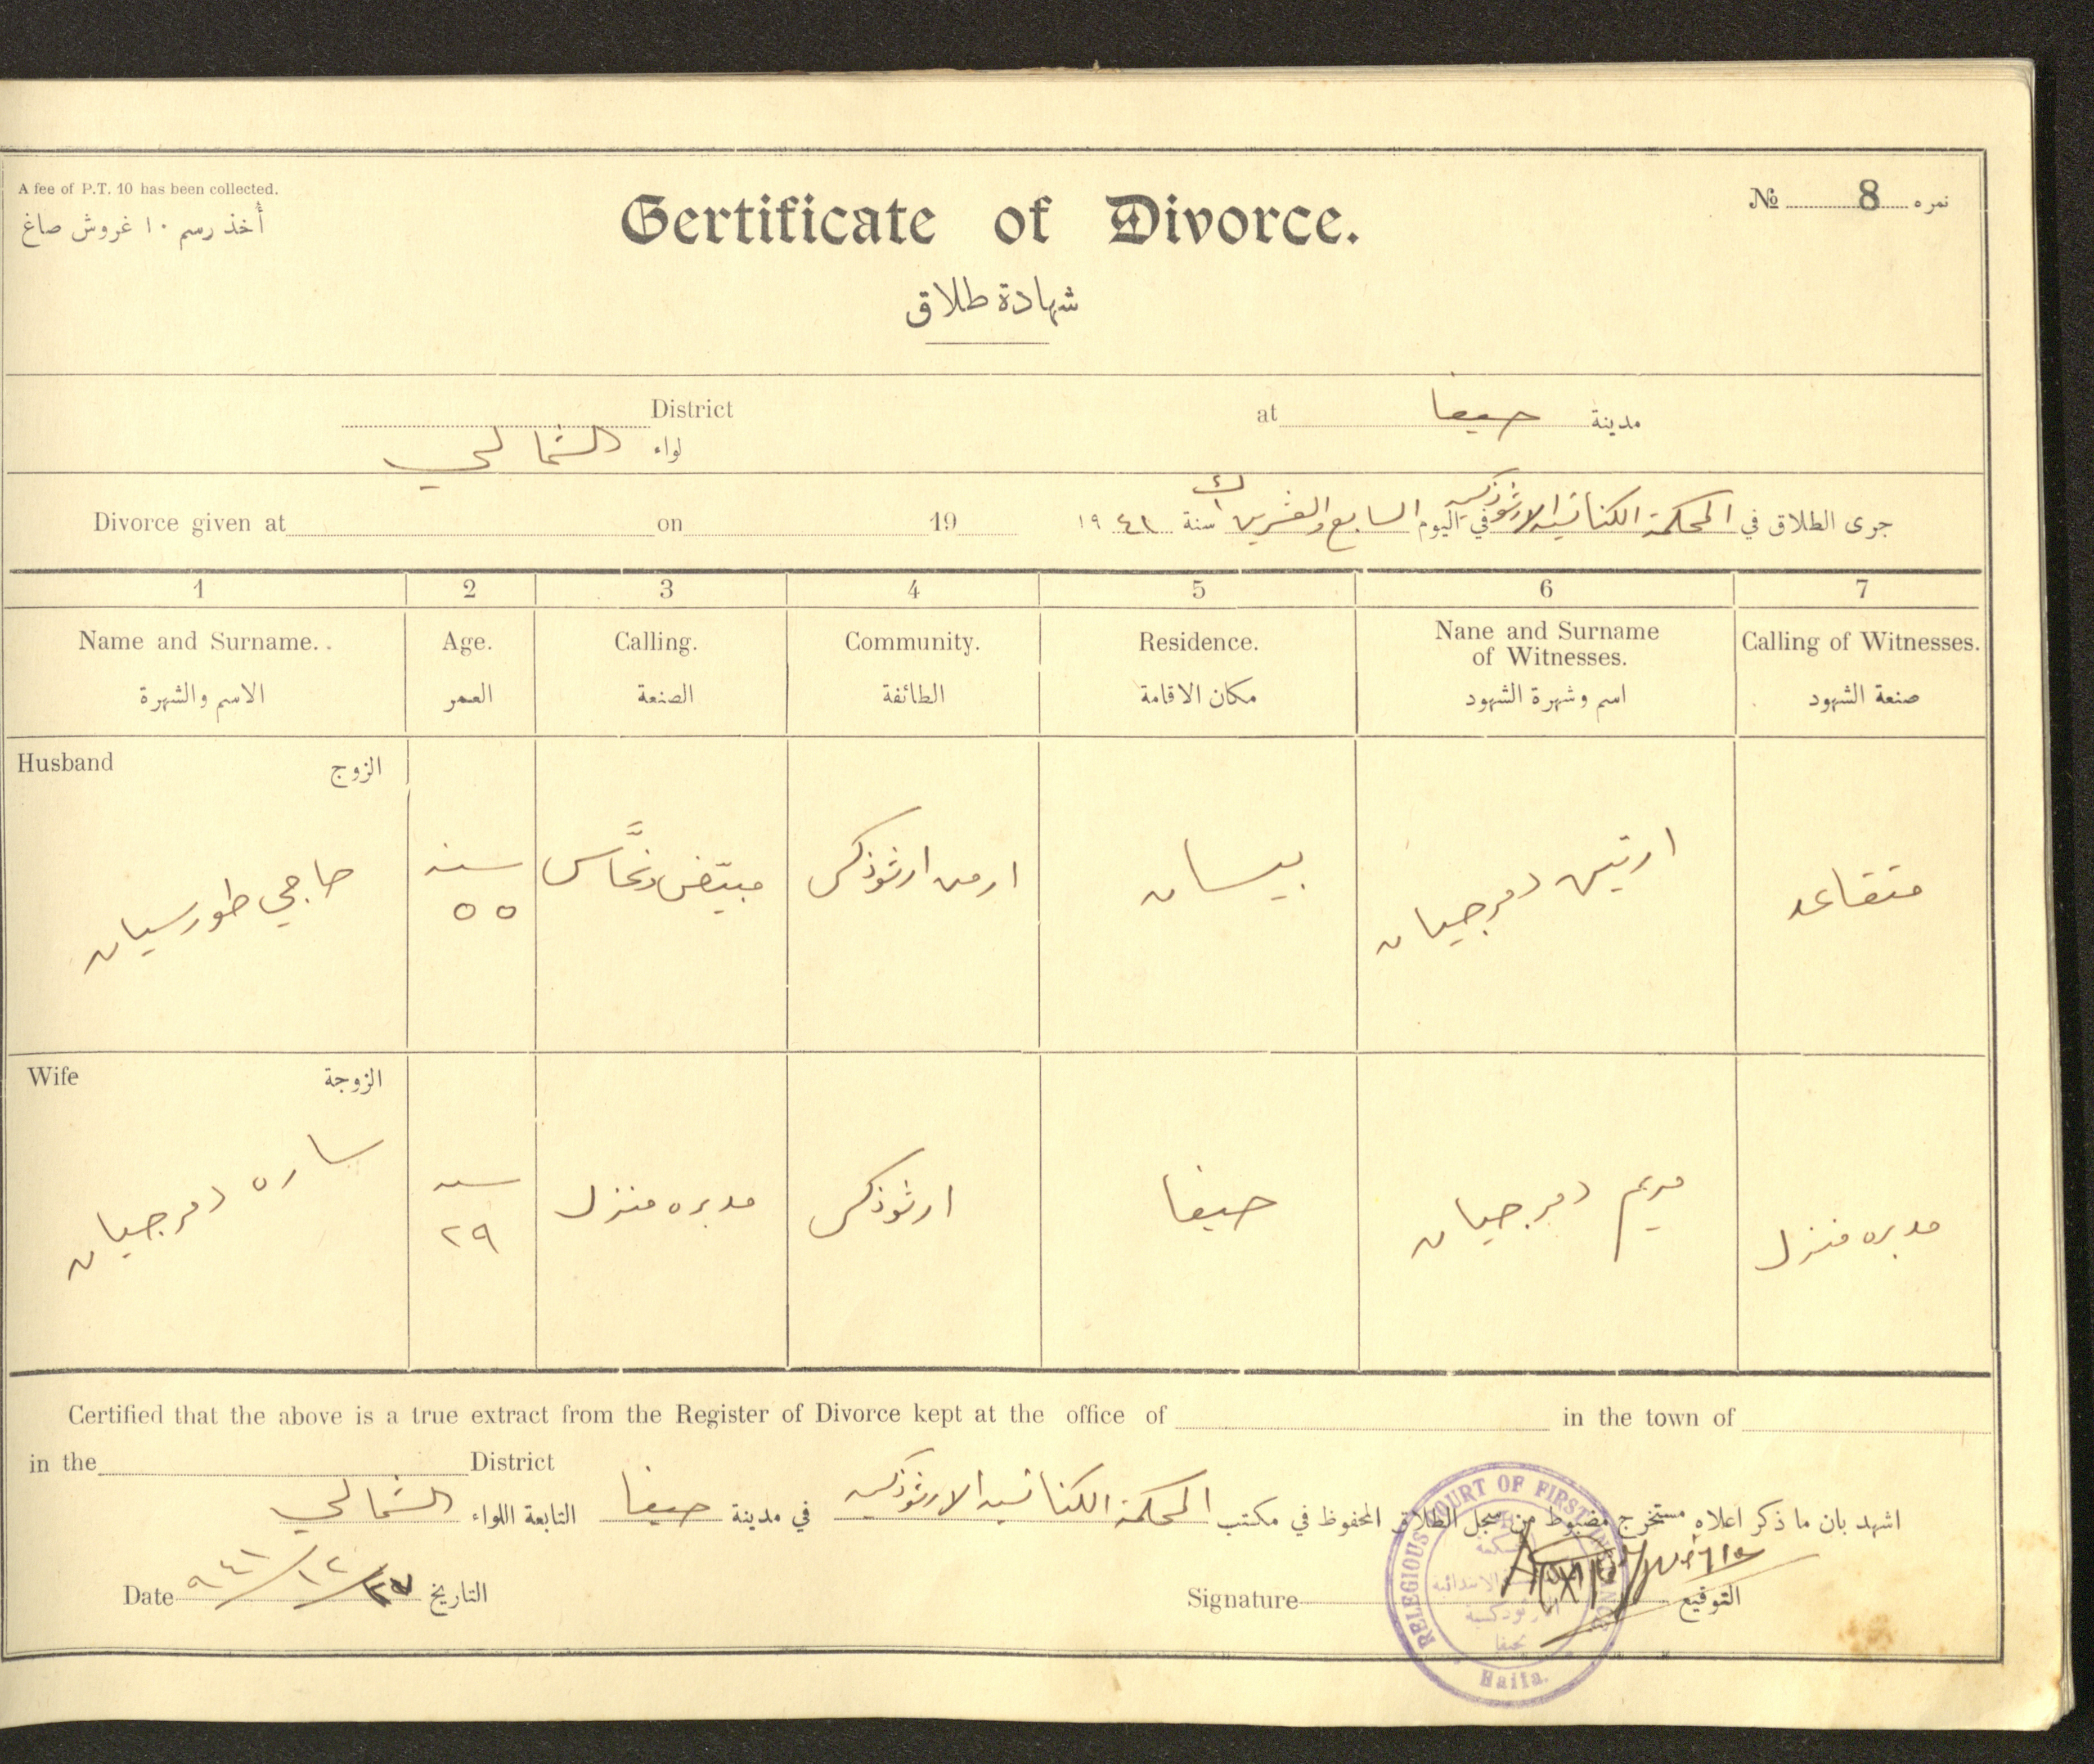 A fee of P.T. 10 has been collected.
أُخذ رسم ١٠ غروش صاغ
Certificate of Divorce.
№ 8 نمره
شهادة طلاق
District
لواء الشمالي
at حيفا مدينة
Divorce given at on 19
جرى الطلاق في المحكمة الكنائسية الارثوذكسية في اليوم السابع والعشرين ك١ سنة ١٩٤١
1 2 3 4 5 6 7
Name and Surname.. Age. Calling. Community. Residence. Nane and Surname of Witnesses. Calling of Witnesses.
الاسم والشهرة العمر الصنعة الطائفة مكان الاقامة اسم وشهرة الشهود صنعة الشهود
Husband الزوج
حاجي طورسيان
سنه ٥٥
مبيّض نحّاس
ارمن ارثوذكس
بيسان
ارتين دمرجيان
متقاعد
Wife الزوجة
ساره دمرجيان
سنه ٢٩
مدبره منزل
ارثوذكس
حيفا
مريم دمرجيان
مدبره منزل
Certified that the above is a true extract from the Register of Divorce kept at the office of in the town of
in the District
اشهد بان ما ذكر اعلاه مستخرج مضبوط من سجل الطلاق المحفوظ في مكتب المحكمة الكنائسية الارثوذكسية في مدينة حيفا التابعة اللواء الشمالي
Date ٢٧/١٢/٩٤١ التاريخ
Signature التوقيع
RELEGIOUS COURT OF FIRST INSTANCE
الابتدائية
الارثوذكسية
بحيفا
Haifa.